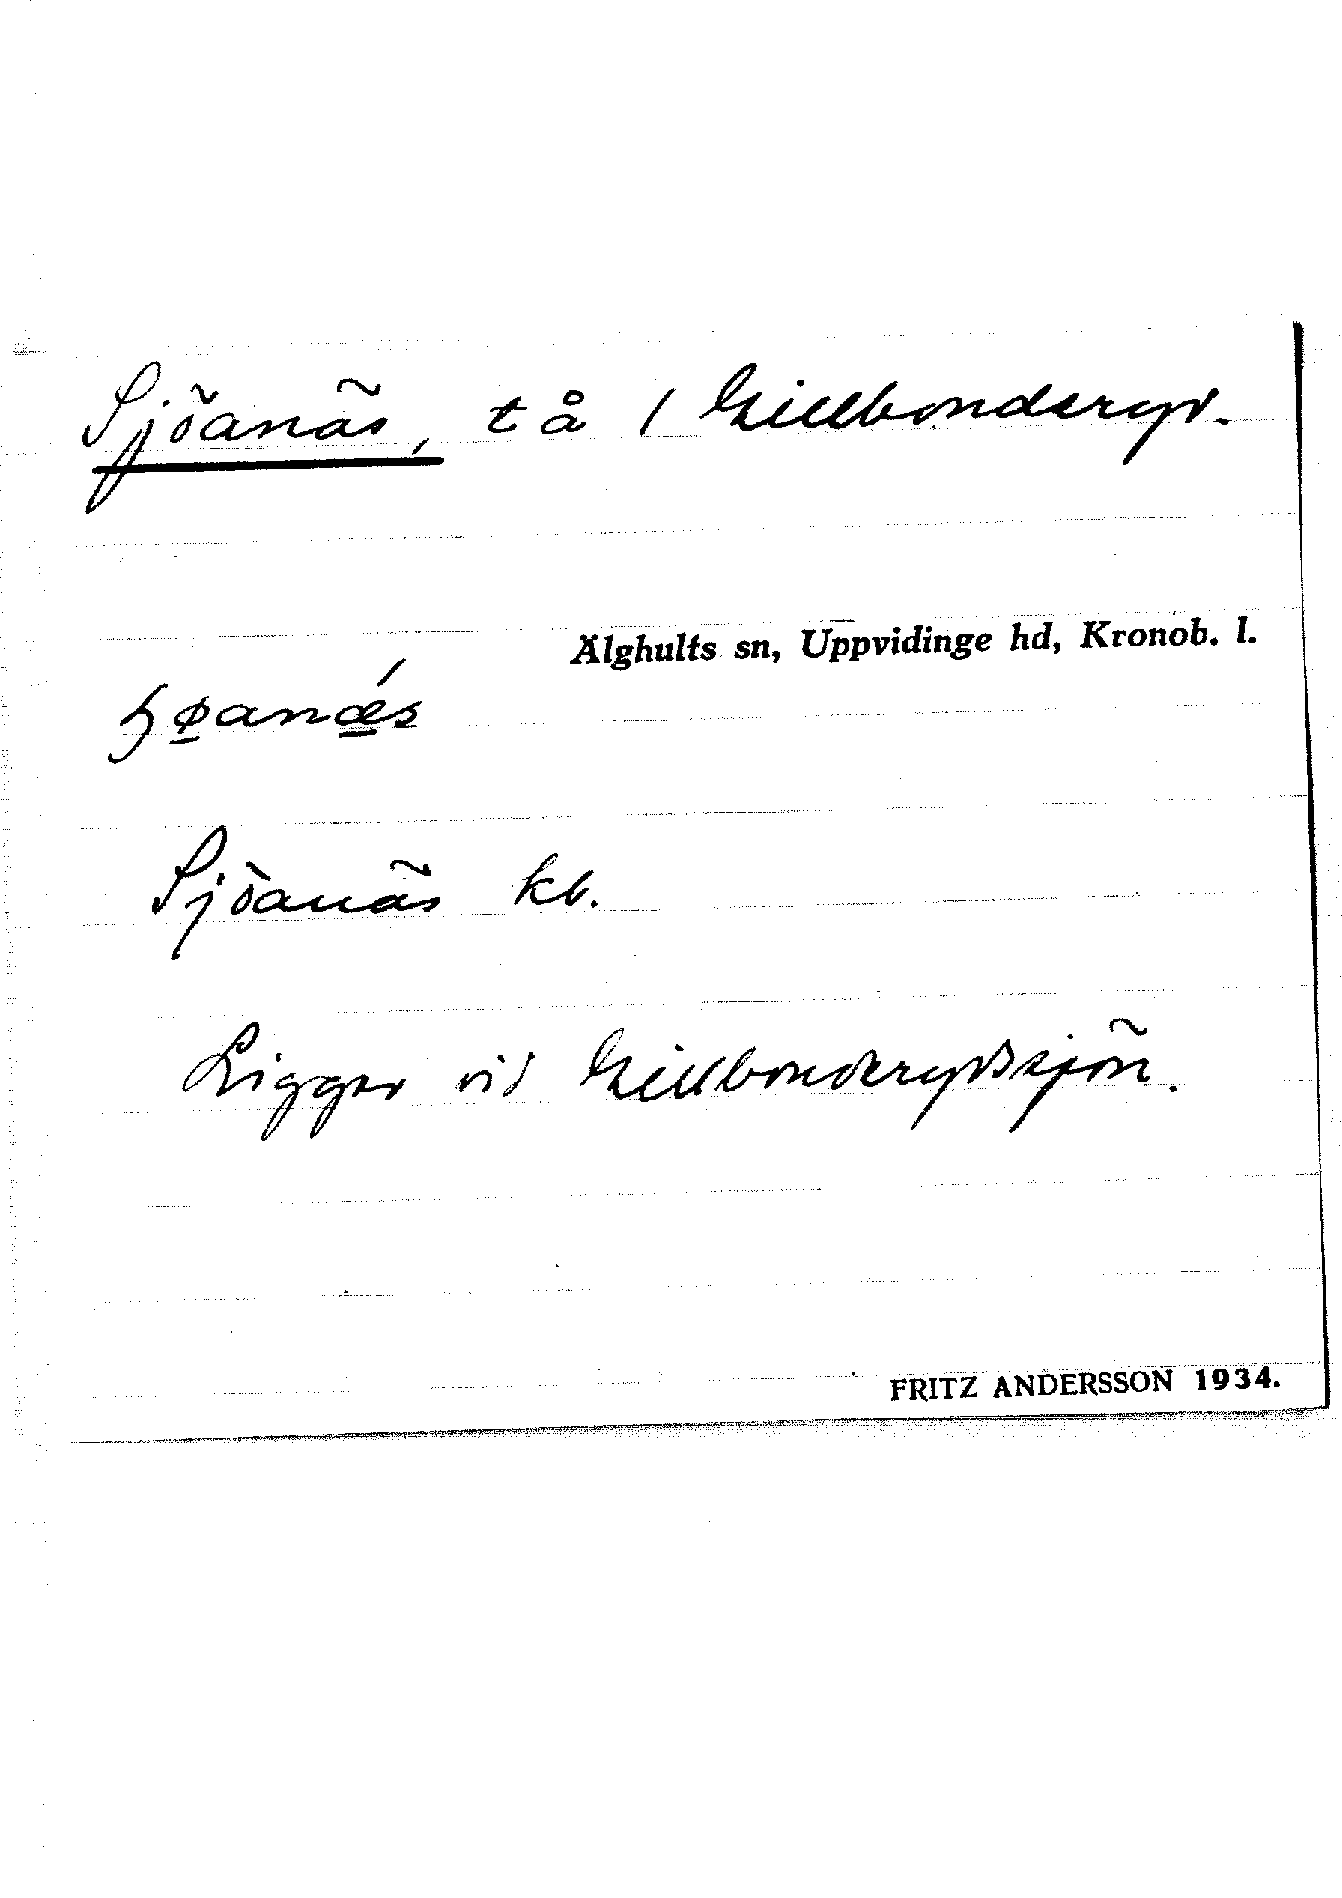 Sjöanäs, tå / Lillbonderyd.
Älghults sn, Uppvidinge hd, Kronob. l.
ɧøanǽs
Sjöanäs kb.
Ligger vid Lillbonderydssjön.
FRITZ ANDERSSON 1934.